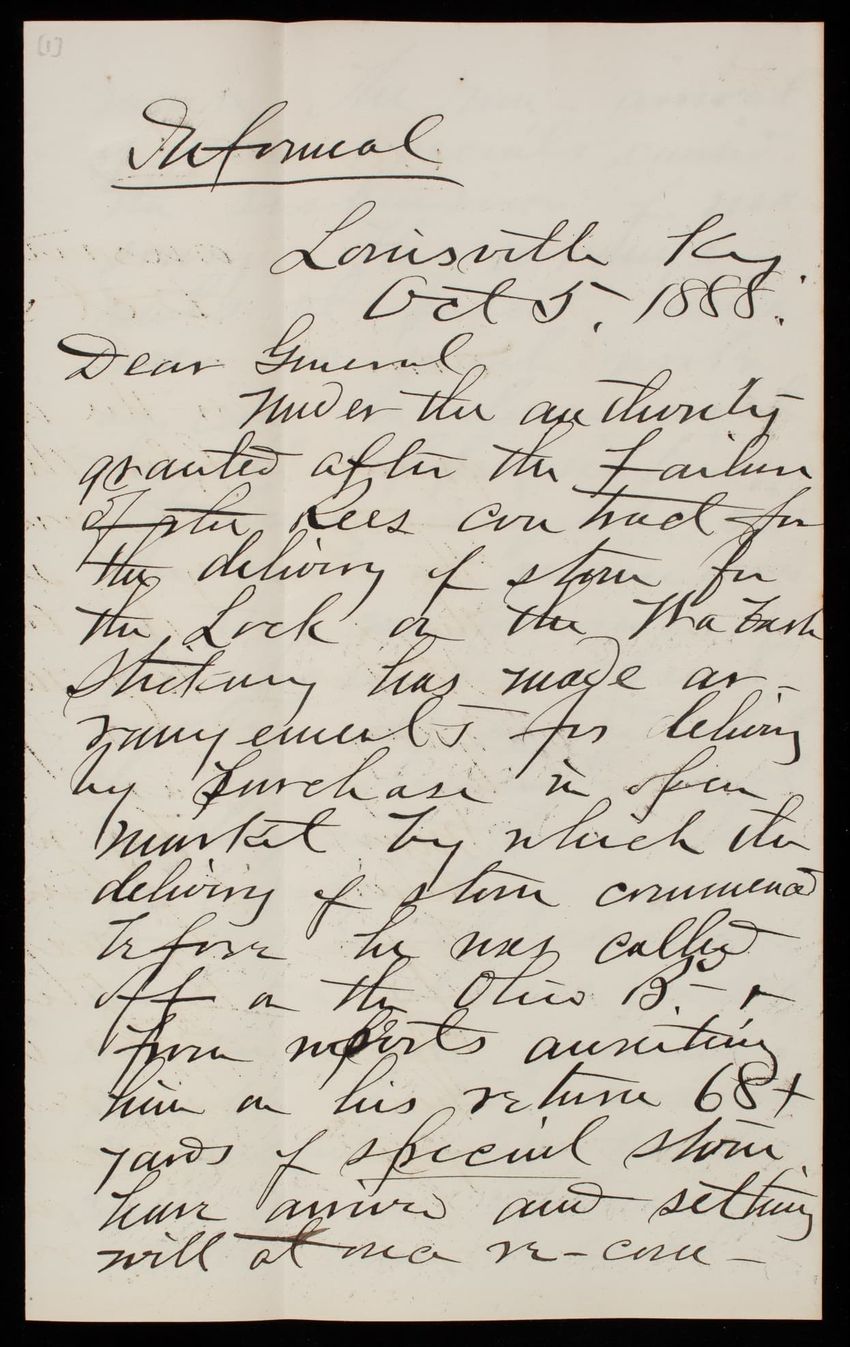 [1]
Informal
Louisville Ky.
Oct 5, 1888.
Dear General
Under the authority
granted after the Failure
of the Rees contract for
the delivery of stone for
the Lock on the Wabash
Stickney has made ar-
rangements for delivery
by purchase in open
market by which the
delivery of stone commenced
before he was called
off on the Ohio Bd - &
from reports awaiting
him on his return 68+
yards of special stone
have arrived and setting
will at once re-com-